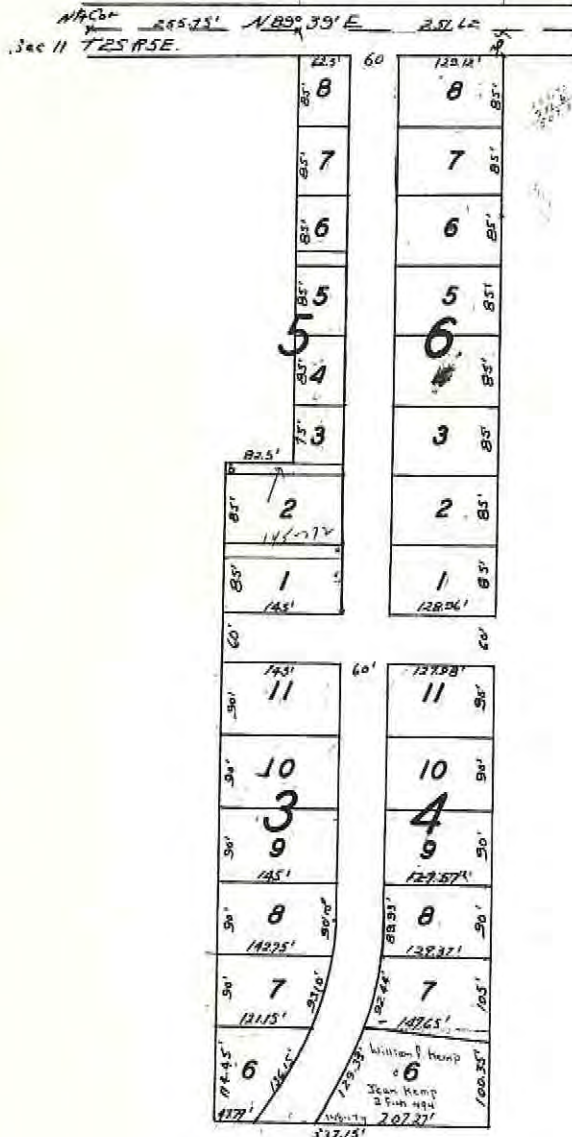 N¼Cor 255.75' N89° 39' E 251.62
Sec 11 T2S R5E.
62.5' 60 129.12'
85' 8 8 85'
85' 7 7 85'
85' 6 6 85'
85' 5 5 85'
5 6
85' 4 85'
75' 3 3 85'
82.5'
85' 2 2 85'
85' 1 1 85'
145' 128.96'
60' 60'
145' 60' 127.98'
90' 11 11 95'
90' 10 10 90'
3 4
90' 9 9 90'
145'
90' 8 90'10" 89.93' 8 90'
142.95' 129.37'
90' 7 93.10' 92.44' 7 105'
121.15' 147.65'
6 136.15' 129.33' William P Kemp
6 100.35'
Jean Kemp
207.27'
337.15'